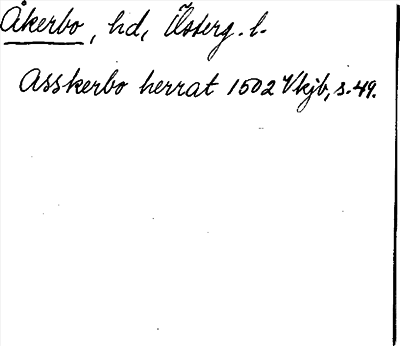 Åkerbo, hd, Österg. l.
Asskerbo herrat 1502 Vkjb, s. 49.